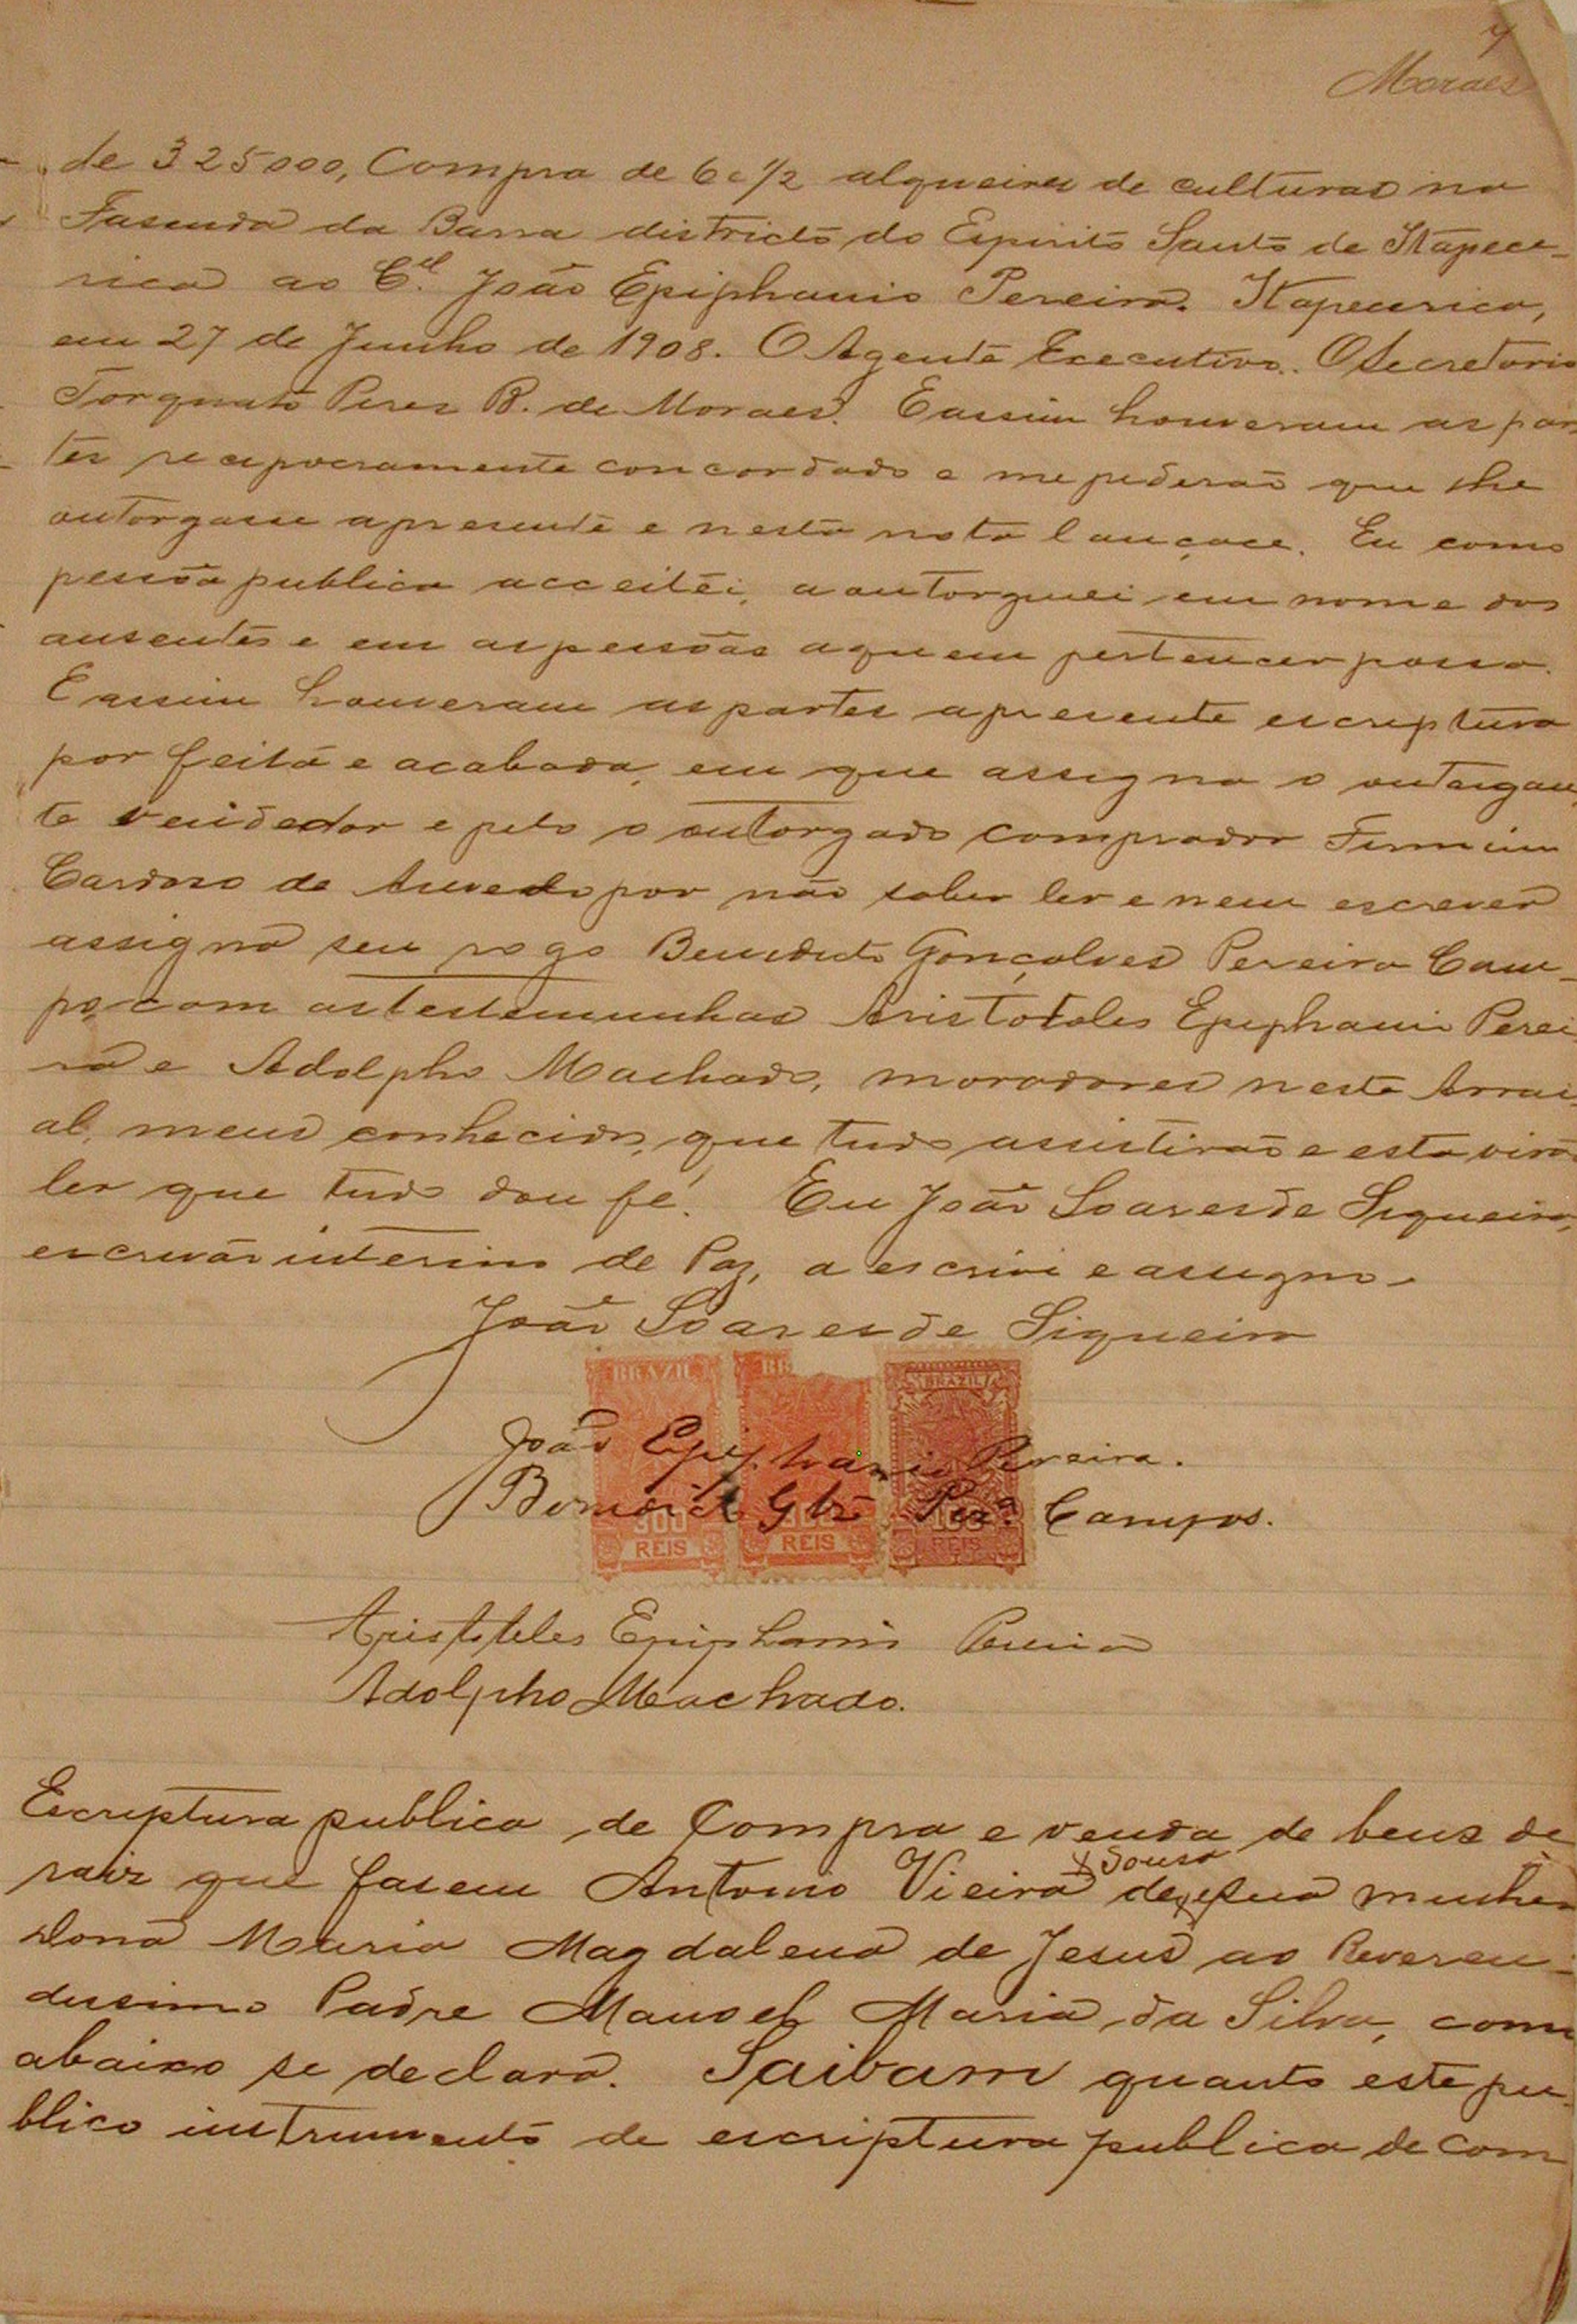 7
Moraes
de 325000, Compra de 6 e ½ alqueires de culturas na
Fasenda da Barra districto do Espirito Santo de Itapece-
rica ao Cel. João Epiphanio Pereira. Itapecerica,
em 27 de Junho de 1908. O Agente Executivo. O Secretario
Torquato Peres B. de Moraes. E assim houveram as par
tes reciprocramente concordado e me pederão que lhe
outorgasse apresente e nesta nota lançace. Eu como
pessôa publica acceitei, a outorguei em nome dos
ausentes e em as pessôas aquem pertencer possa.
E assim houveram as partes apresente escriptura
por feita e acabada, em que assigna o outorgan
te vendedor e pelo o outorgado comprador Firmiim
Cardoso de Asevedo por não saber ler e nem escrever
assigna seu rogo Benedicto Gonçalves Pereira Cam-
po, com as testemunhas Aristotoles Epiphanio Perei
ra e Adolpho Machado, moradores neste Arrai
al, meus conhecidos, que tudo assistirão e esta virão
ler que tudo dou fé. Eu João Soares de Siqueira,
escrivão interino de Paz, a escrivi e assigno.
João Soares de Siqueira
BRAZIL BR BRAZIL
João Epiphanio Pereira.
Glz Perª. Campos.
300 300 100
REIS REIS REIS
Aristoteles Epiphanio Pereira
Adolpho Machado.
Escriptura publica de Compra e venda de bens de
raiz que fasem Antonio Vieira de e sua mulher
x Sousa
Dona Maria Magdalena de Jesus ao Reveren-
dissimo Padre Manoel Maria da Silva, como
abaixo se declara. Saibam quanto este pu
blico instrumento de escriptura publica de com